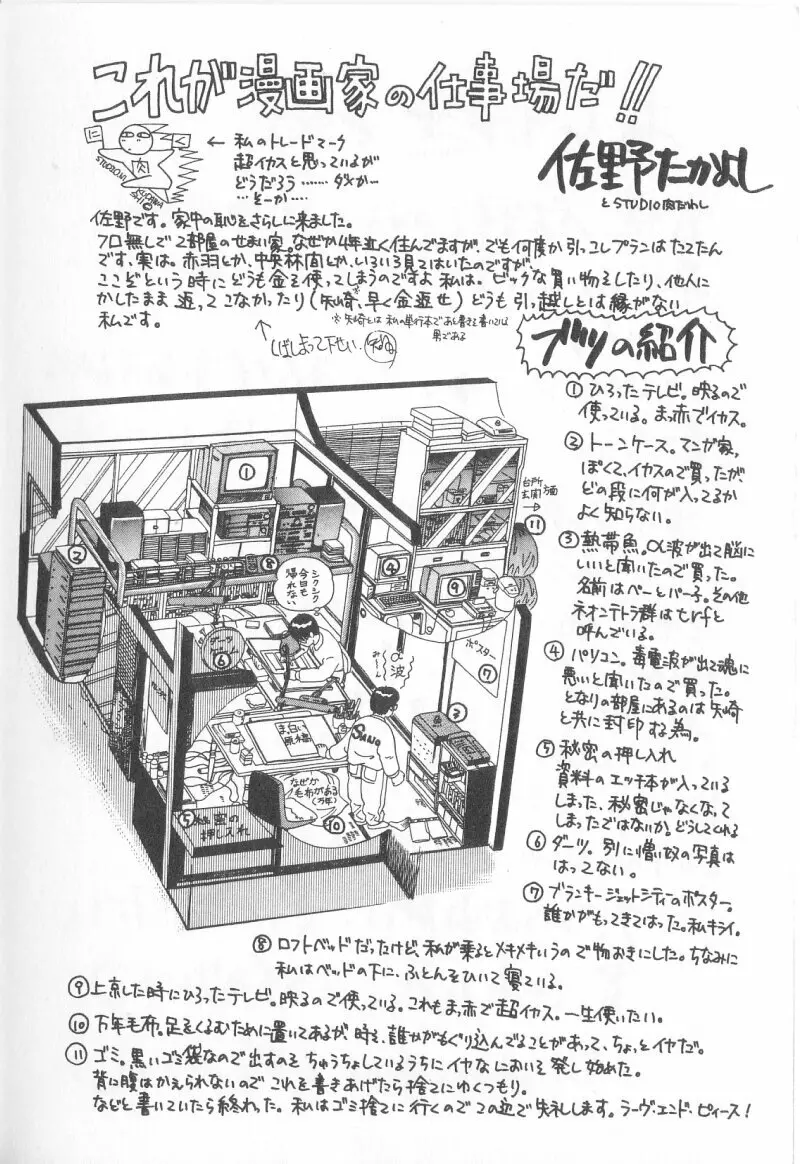 これが漫画家の仕事場だ!!
に
く
肉
← 私のトレードマーク
超イカスと思っているが
どうだろう……ダメか…
…そーか…
佐野たかよし
と STUDIO肉たわし
佐野です。家中の恥をさらしに来ました。
フロ無しで2部屋のせまい家。なぜか4年近く住んでますが、でも何度か引っコしプランはたてたん
です、実は。赤羽とか、中央林間とか、いろいろ見てはいたのですが、
ここぞという時にどうも金を使ってしまうのですよ私は。ビックな買い物をしたり、他人に
かしたまま返ってこなかったり(矢崎※、早く金返せ)どうも引っ越しとは縁がない
私です。
※矢崎とは私の単行本であと書きを書いている
男である
ブツの紹介
① ひろったテレビ。映るので
使っている。まっ赤でイカス。
② トーンケース。マンガ家
ぽくて、イカスので買ったが、
どの段に何が入ってるか
よく知らない。
③ 熱帯魚。α波が出て脳に
いいと聞いたので買った。
名前はペーとパー子。その他
ネオンテトラ群はtrfと
呼んでいる。
④ パソコン。毒電波が出て魂に
悪いと聞いたので買った。
となりの部屋にあるのは矢崎
と共に封印する為。
⑤ 秘密の押し入れ
資料のエッチ本が入っている
しまった、秘密じゃなくなって
しまったではないか。どうしてくれる
⑥ ダーツ。別に憎い奴の写真は
はってない。
⑦ ブランキージェットシティーのポスター。
誰かがもってきてはった。私キライ。
①
②
③
④
⑤
⑥
⑦
⑧
⑨
⑩
⑪
台所
玄関方面
→
シクシク
今日も
帰れない
ポスター
α波
みーん
まっ白い
原稿
Sano
なぜか
毛布がある
(万年)
秘密の
押し入れ
⑧ ロフトベッドだったけど、私が乗るとメキメキいうので物おきにした。ちなみに
私はベッドの下に、ふとんをひいて寝ている。
⑨ 上京した時にひろったテレビ。映るので使っている。これもまっ赤で超イカス。一生使いたい。
⑩ 万年毛布。足をくるむために置いてあるが、時々、誰かがもぐり込んでることがあって、ちょっとイヤだ。
⑪ ゴミ。黒いゴミ袋なので出すのをちゅうちょしているうちにイヤなにおいを発し始めた。
背に腹はかえられないのでこれを書きあげたら捨てにゆくつもり。
などと書いていたら終わった。私はゴミ捨てに行くのでこの辺で失礼します。ラーヴ・エンド・ピィース!